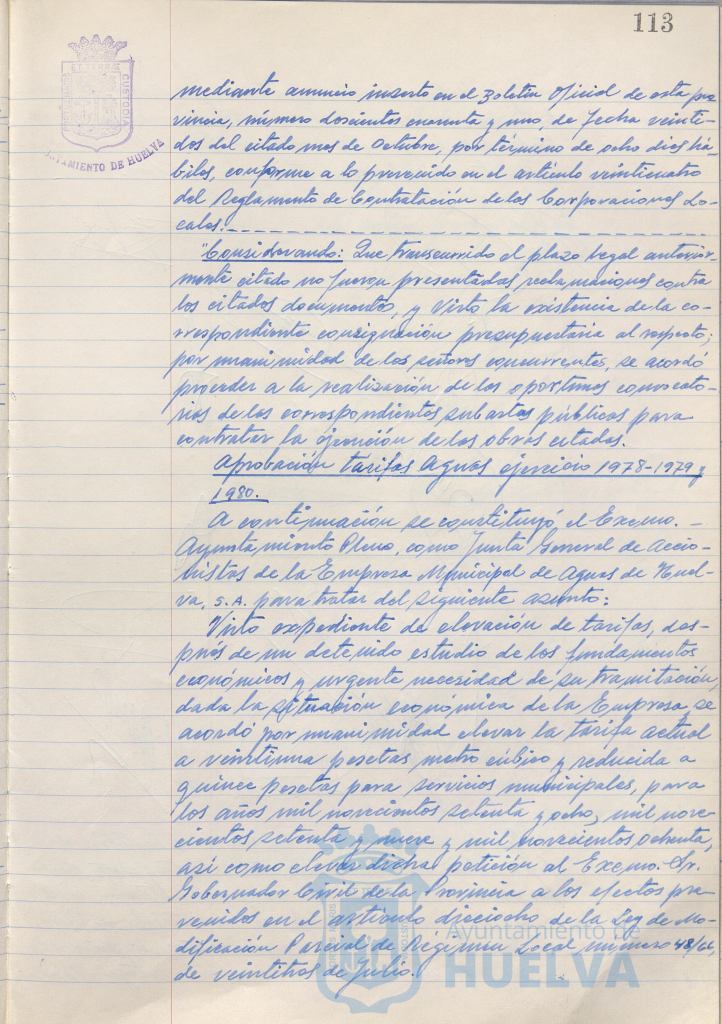 113
AYUNTAMIENTO DE HUELVA
mediante anuncio inserto en el Boletín Oficial de esta pro-
vincia, número doscientos cuarenta y uno de fecha veinti-
dos del citado mes de Octubre, por término de ocho dias há-
biles, conforme a lo prevenido en el artículo veinticuatro
del Reglamento de Contratación de las Corporaciones Lo-
cales.
"Considerando: Que transcurrido el plazo legal anterior-
mente citado no fueron presentadas reclamaciones contra
los citados documentos, y visto la existencia de la co-
rrespondiente consignación presupuestaria al respecto;
por unanimidad de los señores concurrentes, se acordó
proceder a la realización de las oportunas convocato-
rias de las correspondientes subastas públicas para
contratar la ejecución de las obras citadas.
Aprobación tarifas Aguas ejercicio 1978-1979 y
1980.
A continuación se constituyó el Excmo. -
Ayuntamiento Pleno, como Junta General de Accio-
nistas de la Empresa Municipal de Aguas de Huel-
va, S.A. para tratar del siguiente asunto:
Visto expediente de elevación de tarifas, des-
pués de un detenido estudio de los fundamentos
económicos y urgente necesidad de su tramitación,
dada la situación económica de la Empresa, se
acordó por unanimidad elevar la tarifa actual
a veintiuna pesetas metro cúbico y reducida a
quince pesetas para servicios municipales, para
los años mil novecientos setenta y ocho, mil nove-
cientos setenta y nueve y mil novecientos ochenta,
así como elevar dicha petición al Excmo. Sr.
Gobernador Civil de la Provincia a los efectos pre-
venidos en el artículo dieciocho de la Ley de Mo-
dificación Parcial de Régimen Local número 48/66,
de veintitres de Julio.
Ayuntamiento de
HUELVA